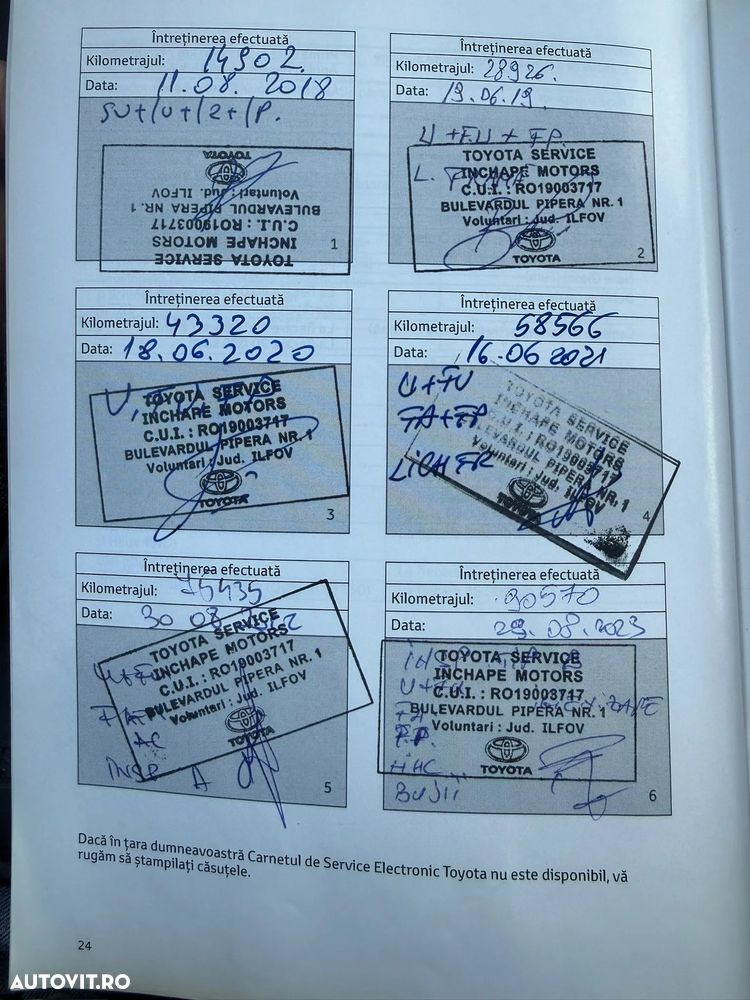 Întreținerea efectuată
Kilometrajul: 14902.
Data: 11.08. 2018
SU+/U+/2+/P.
TOYOTA SERVICE
INCHAPE MOTORS
C.U.I. : RO19003717
BULEVARDUL PIPERA NR. 1
Voluntari : Jud. ILFOV
TOYOTA
1
Întreținerea efectuată
Kilometrajul: 28926.
Data: 19.06.19.
U+FU+FP
L.
TOYOTA SERVICE
INCHAPE MOTORS
C.U.I. : RO19003717
BULEVARDUL PIPERA NR. 1
Voluntari : Jud. ILFOV
TOYOTA
2
Întreținerea efectuată
Kilometrajul: 43320
Data: 18.06.2020
TOYOTA SERVICE
INCHAPE MOTORS
C.U.I. : RO19003717
BULEVARDUL PIPERA NR. 1
Voluntari : Jud. ILFOV
TOYOTA
3
Întreținerea efectuată
Kilometrajul: 58566
Data: 16.06 2021
U+FU
FA+FP
LICH FR
TOYOTA SERVICE
INCHAPE MOTORS
C.U.I. : RO19003717
BULEVARDUL PIPERA NR. 1
Voluntari : Jud. ILFOV
TOYOTA
4
Întreținerea efectuată
Kilometrajul: 75435
Data: 30 08
U+FU
AC
INSP A
TOYOTA SERVICE
INCHAPE MOTORS
C.U.I. : RO19003717
BULEVARDUL PIPERA NR. 1
Voluntari : Jud. ILFOV
TOYOTA
5
Întreținerea efectuată
Kilometrajul: 90570
Data: 29.08.2023
U+FU
FA
F.P.
HHC
BUJII
TOYOTA SERVICE
INCHAPE MOTORS
C.U.I. : RO19003717
BULEVARDUL PIPERA NR. 1
Voluntari : Jud. ILFOV
TOYOTA
6
Dacă în țara dumneavoastră Carnetul de Service Electronic Toyota nu este disponibil, vă
rugăm să ștampilați căsuțele.
24
AUTOVIT.RO